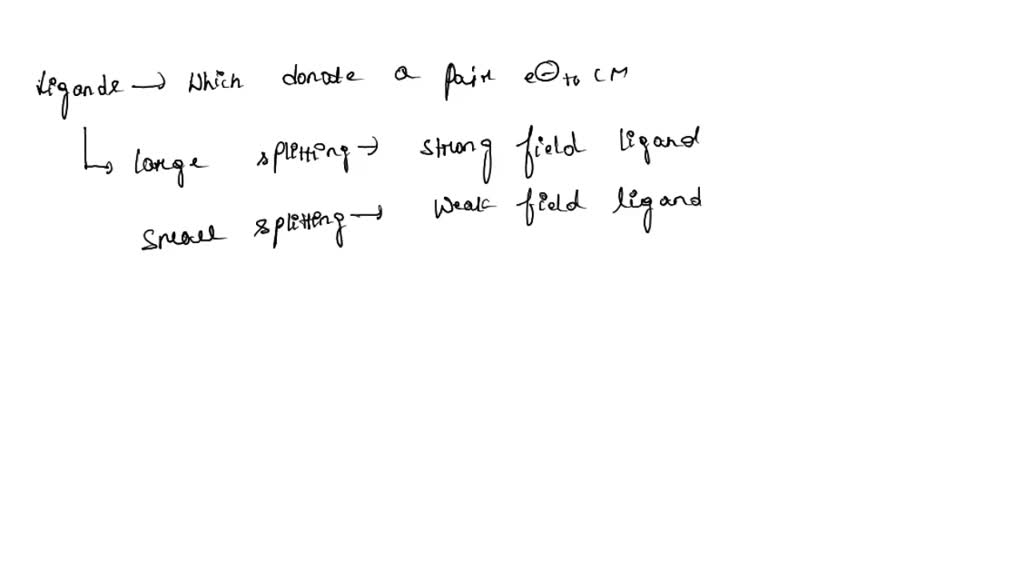 Ligands → Which donate a pair e⊖ to CM
↳ large splitting → strong field ligand
small splitting → weak field ligand